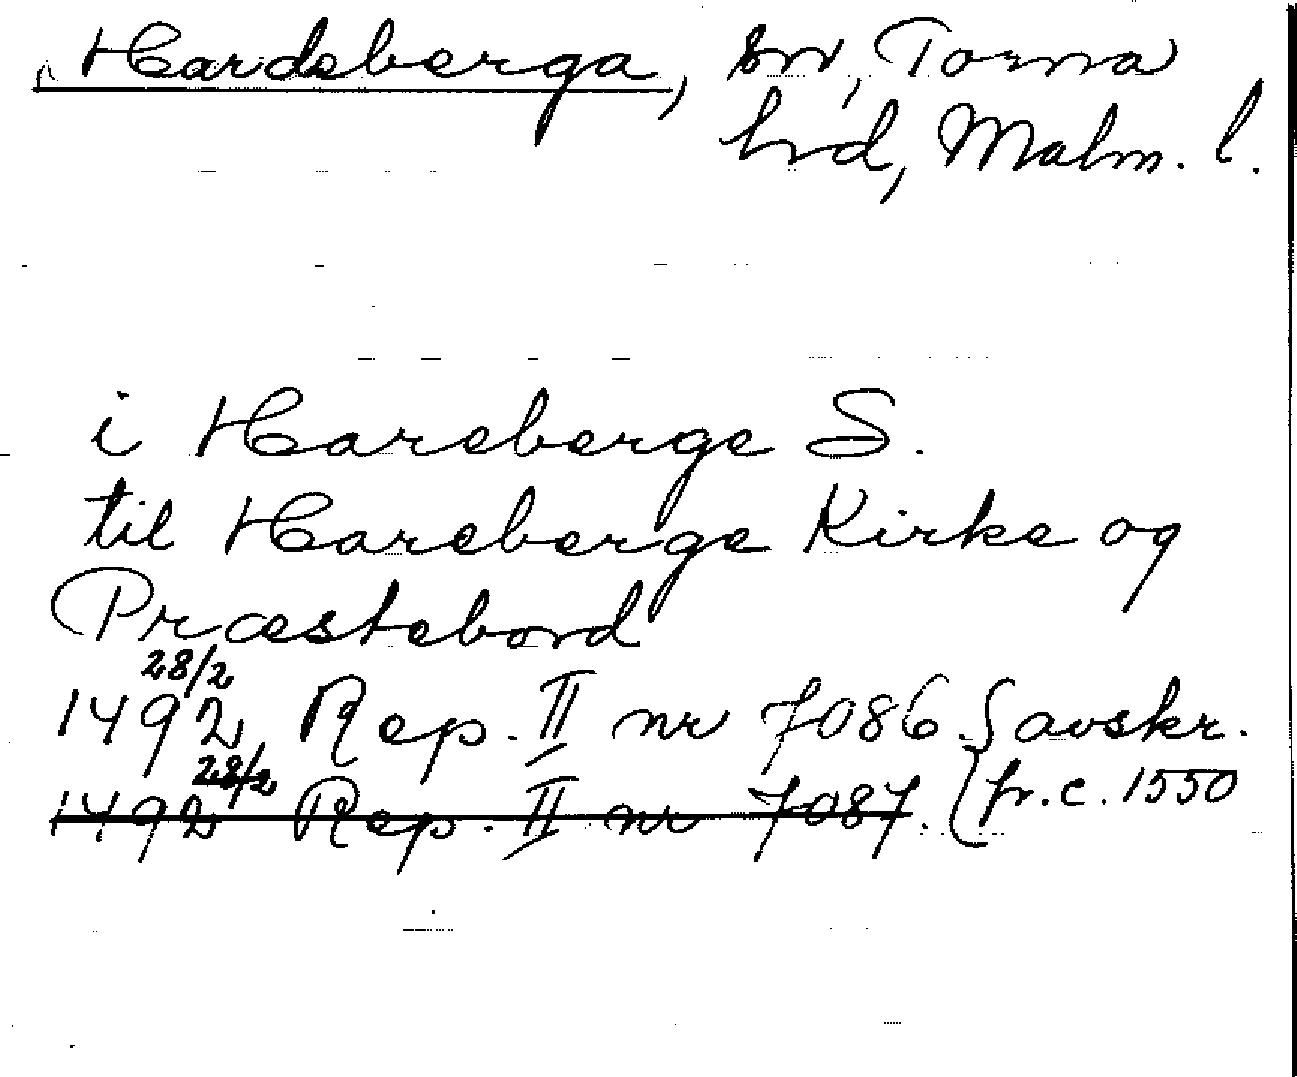 Hardeberga, sn, Torna
hrd, Malm. l.
i Hareberge S.
til Hareberge Kirke og
Præstebord
28/2
1492 Rep. II nr 7086. { avskr.
28/2
1492 Rep. II nr 7087. { fr. c. 1550